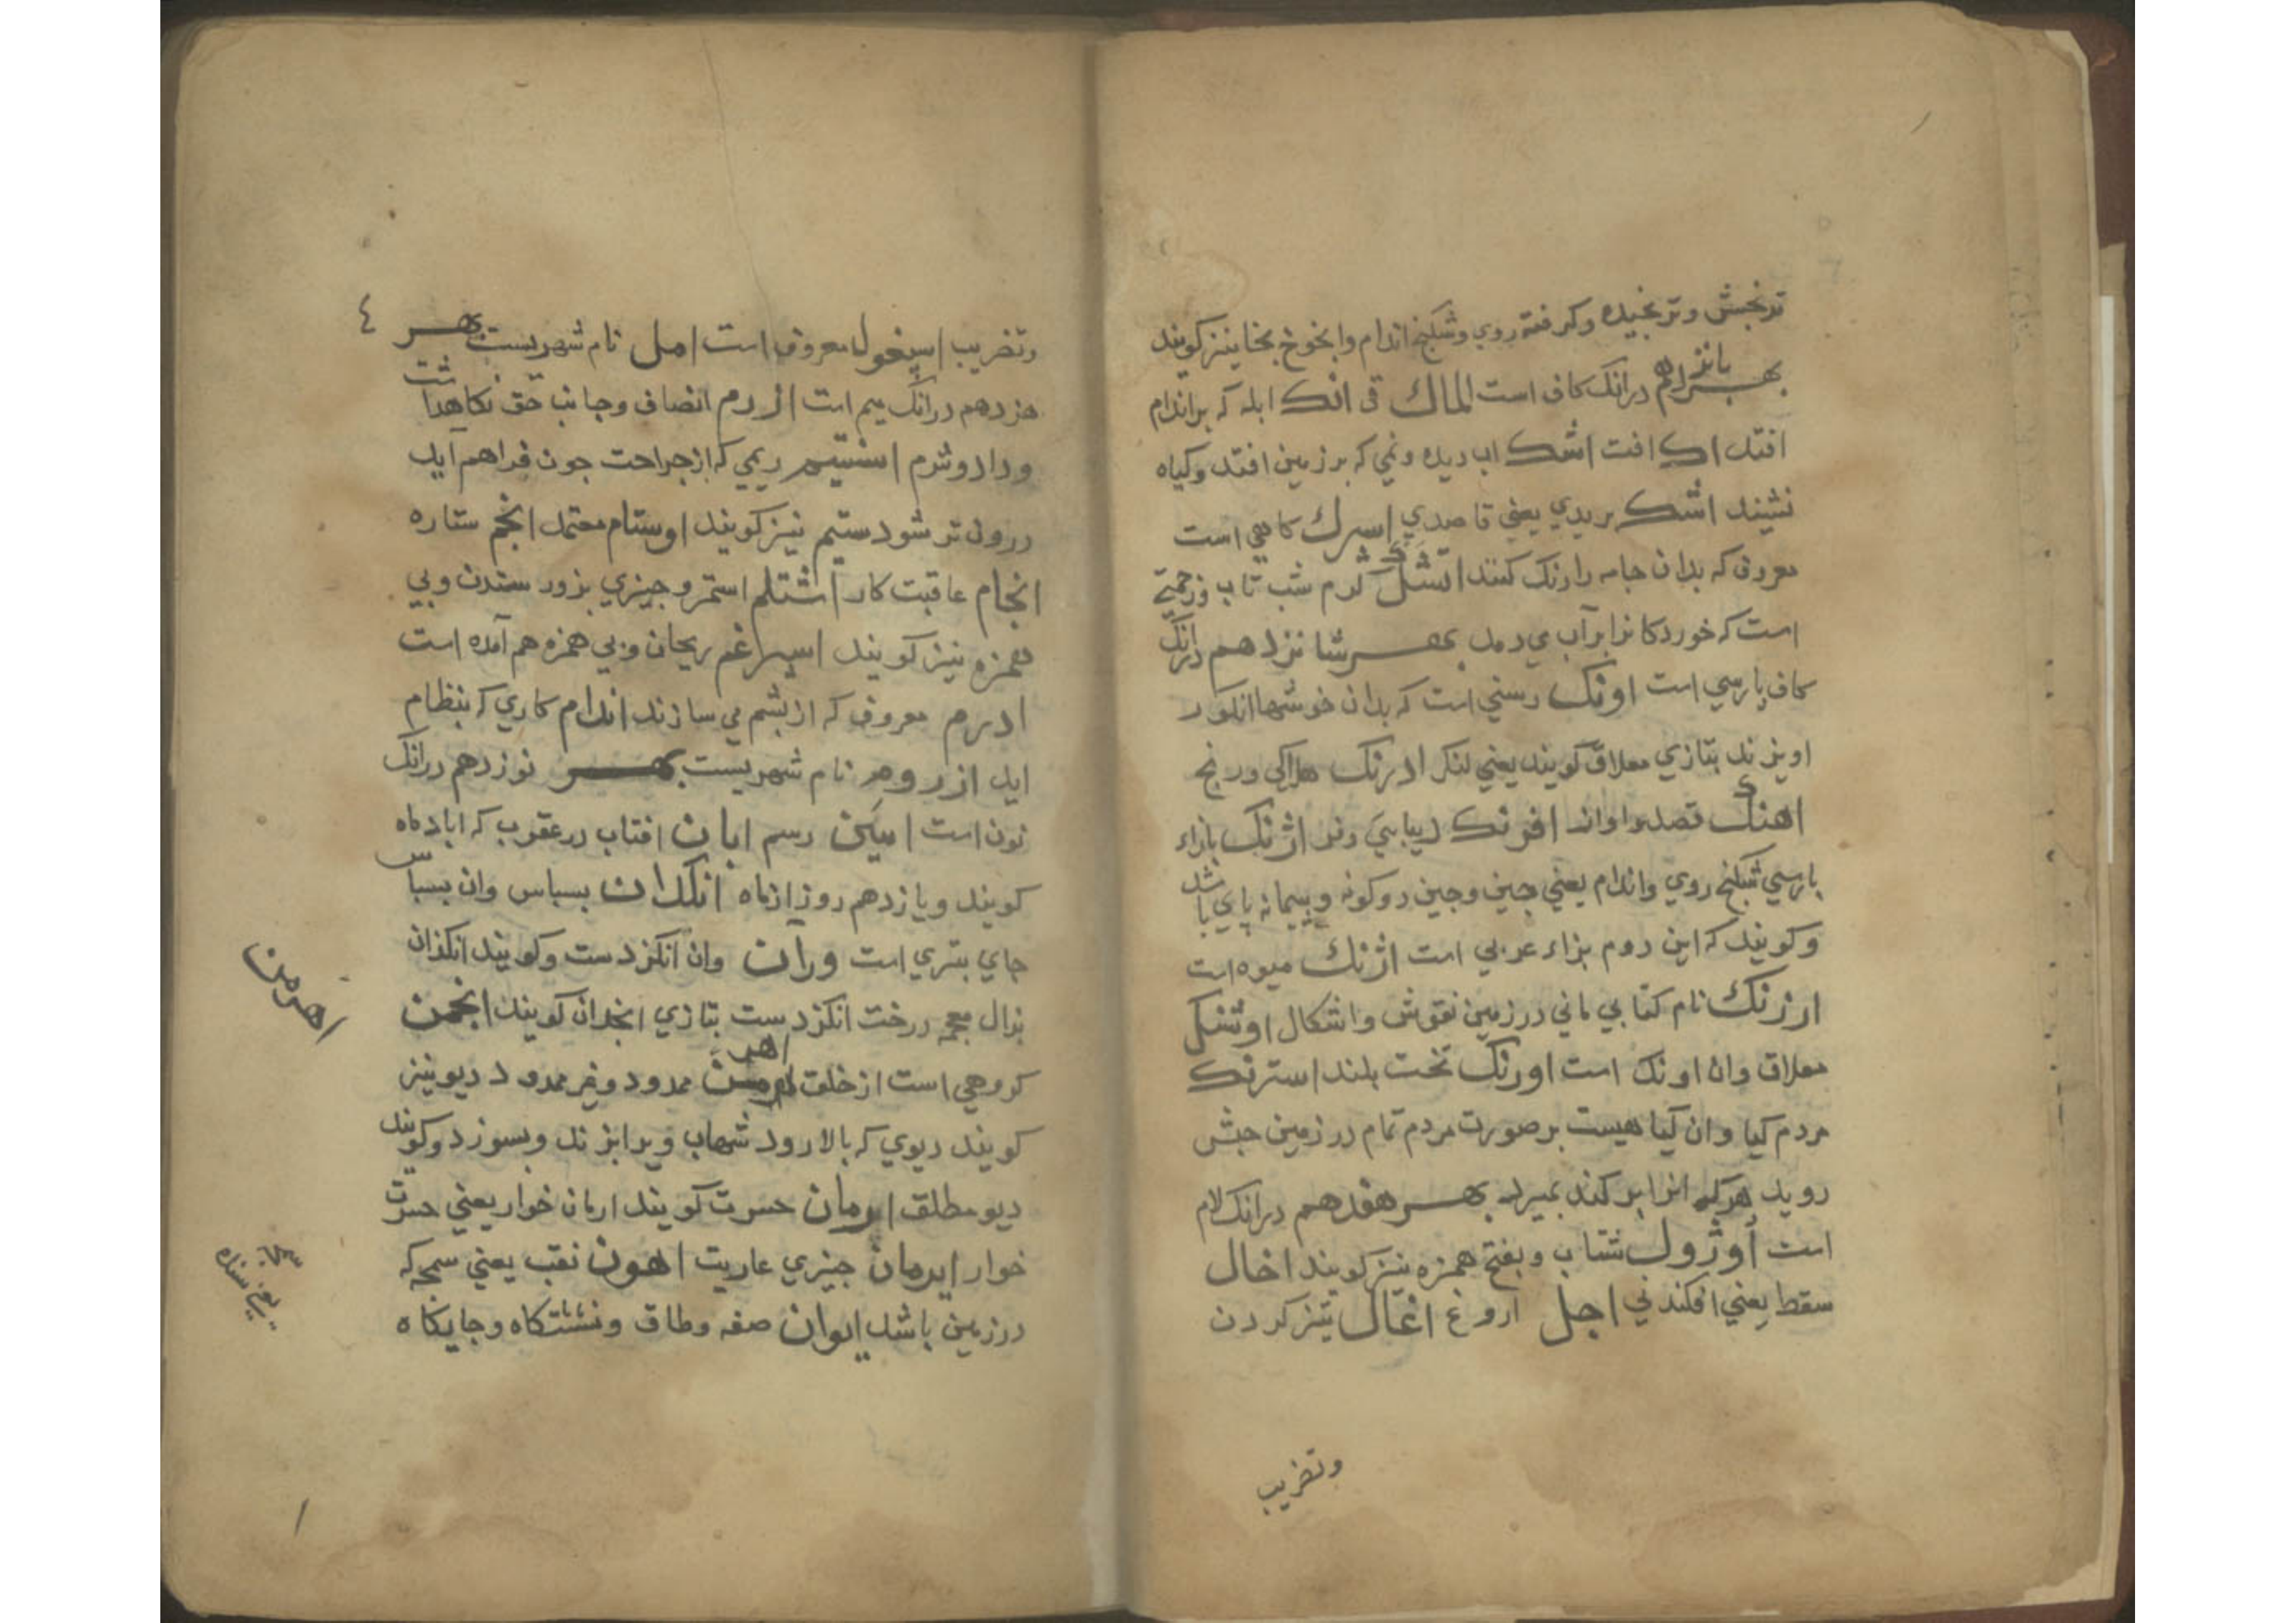 ترنجش وترنجیده وکرفته روي وشکنج اندام وانخوخ بخا نیزکویند
بهـــر پانزدهم درانک کاف است الماك قی انک ابله که براندام
افتد اک افت اشک اب دیده ونمي که برزمین افتد وکیاه
نشیند اشک بریدي یعني قاصدي اسرك کاهي است
معروف که بدان جامه رارنک کنند اتشک کرم شب تاب وزحمتي
است که خوردکانرا برآب مي دمد بهـــر شانزدهم درانک
کاف پارسي است اونک رسني است که بدان خوشها انکور
اویزند بتازي معلاق کویند یعني لنکر ادرنک هلاکي ورنج
اهنک قصد واواز افرنک دیبایي وفر اژنک بازاء
پارسي شکنج روي واندام یعني چین وچین دوکونه وپیمانه پاي باشد
وکویند که این دوم بزاء عربي است اژنك میوه است
ارژنك نام کتابي ماني درزمین نقوش واشکال اوشنک
معلاق وان اونك است اورنک تخت بلند استرنک
مردم کیا وان کیاهیست برصورت مردم تمام درزمین حبش
روید هرکه انرا برکند بمیرد بهـــر هفدهم درانک لام
است اوژول شتاب وبفتح همزه نیزکویند اخال
سقط یعني افکندني اجل اروغ اغال تیزکردن
وتضریب
٤
وتضریب اسپغول معروف است امل نام شهریست بهـــر
هزدهم درانک میم است ازرم انصاف وجانب حق نکاهداشت
وداد وشرم استیم ریمي که ازجراحت چون فراهم آید
درون تر شود ستیم نیزکویند اوستام معتمد انجم ستاره
انجام عاقبت کار اشتلم استمر وچیزي بزور ستدن وبي
همزه نیزکویند اسپرغم ریحان وبي همزه هم آمده است
ادرم معروف که ازپشم مي سازند اندام کاري که بنظام
اید ازروم نام شهریست بهـــر نوزدهم درانک
نون است امین رسم ابان افتاب درعقرب که ابادماه
کویند ویازدهم روز ازماه انکدان بسباس وان بسباس
جاي بتري است وران وان انکزدست وکویند انکذان
بذال معجمه درخت انکزدست بتازي انجدان کویند انجمن
کروهي است ازخلق اهرمن ممدود وغیرممدود دیو نیز
کویند دیوي که بالا رود شهاب ویرا بزند وبسوزد وکویند
دیو مطلق ارمان حسرت کویند ارمان خوار یعني حسرت
خوار ایرمان چیزي عاریت اهون نقب یعني سمجه که
درزمین باشد ایوان صفه وطاق ونشستکاه وجایکاه
اهرمن